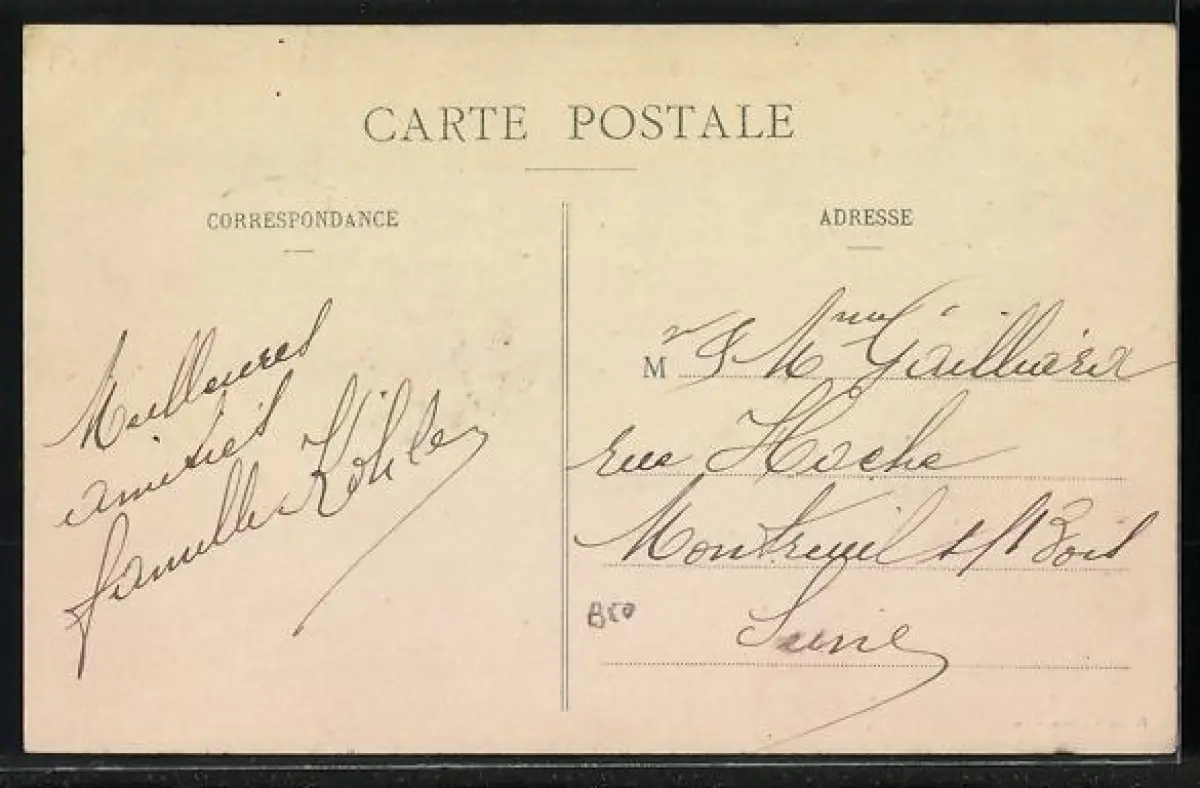 CARTE POSTALE
CORRESPONDANCE
Meilleures
amitiés
famille Köhler
ADRESSE
Mr & Mme Gailliard
rue Hoche
Montreuil s/s Bois
Seine
B50